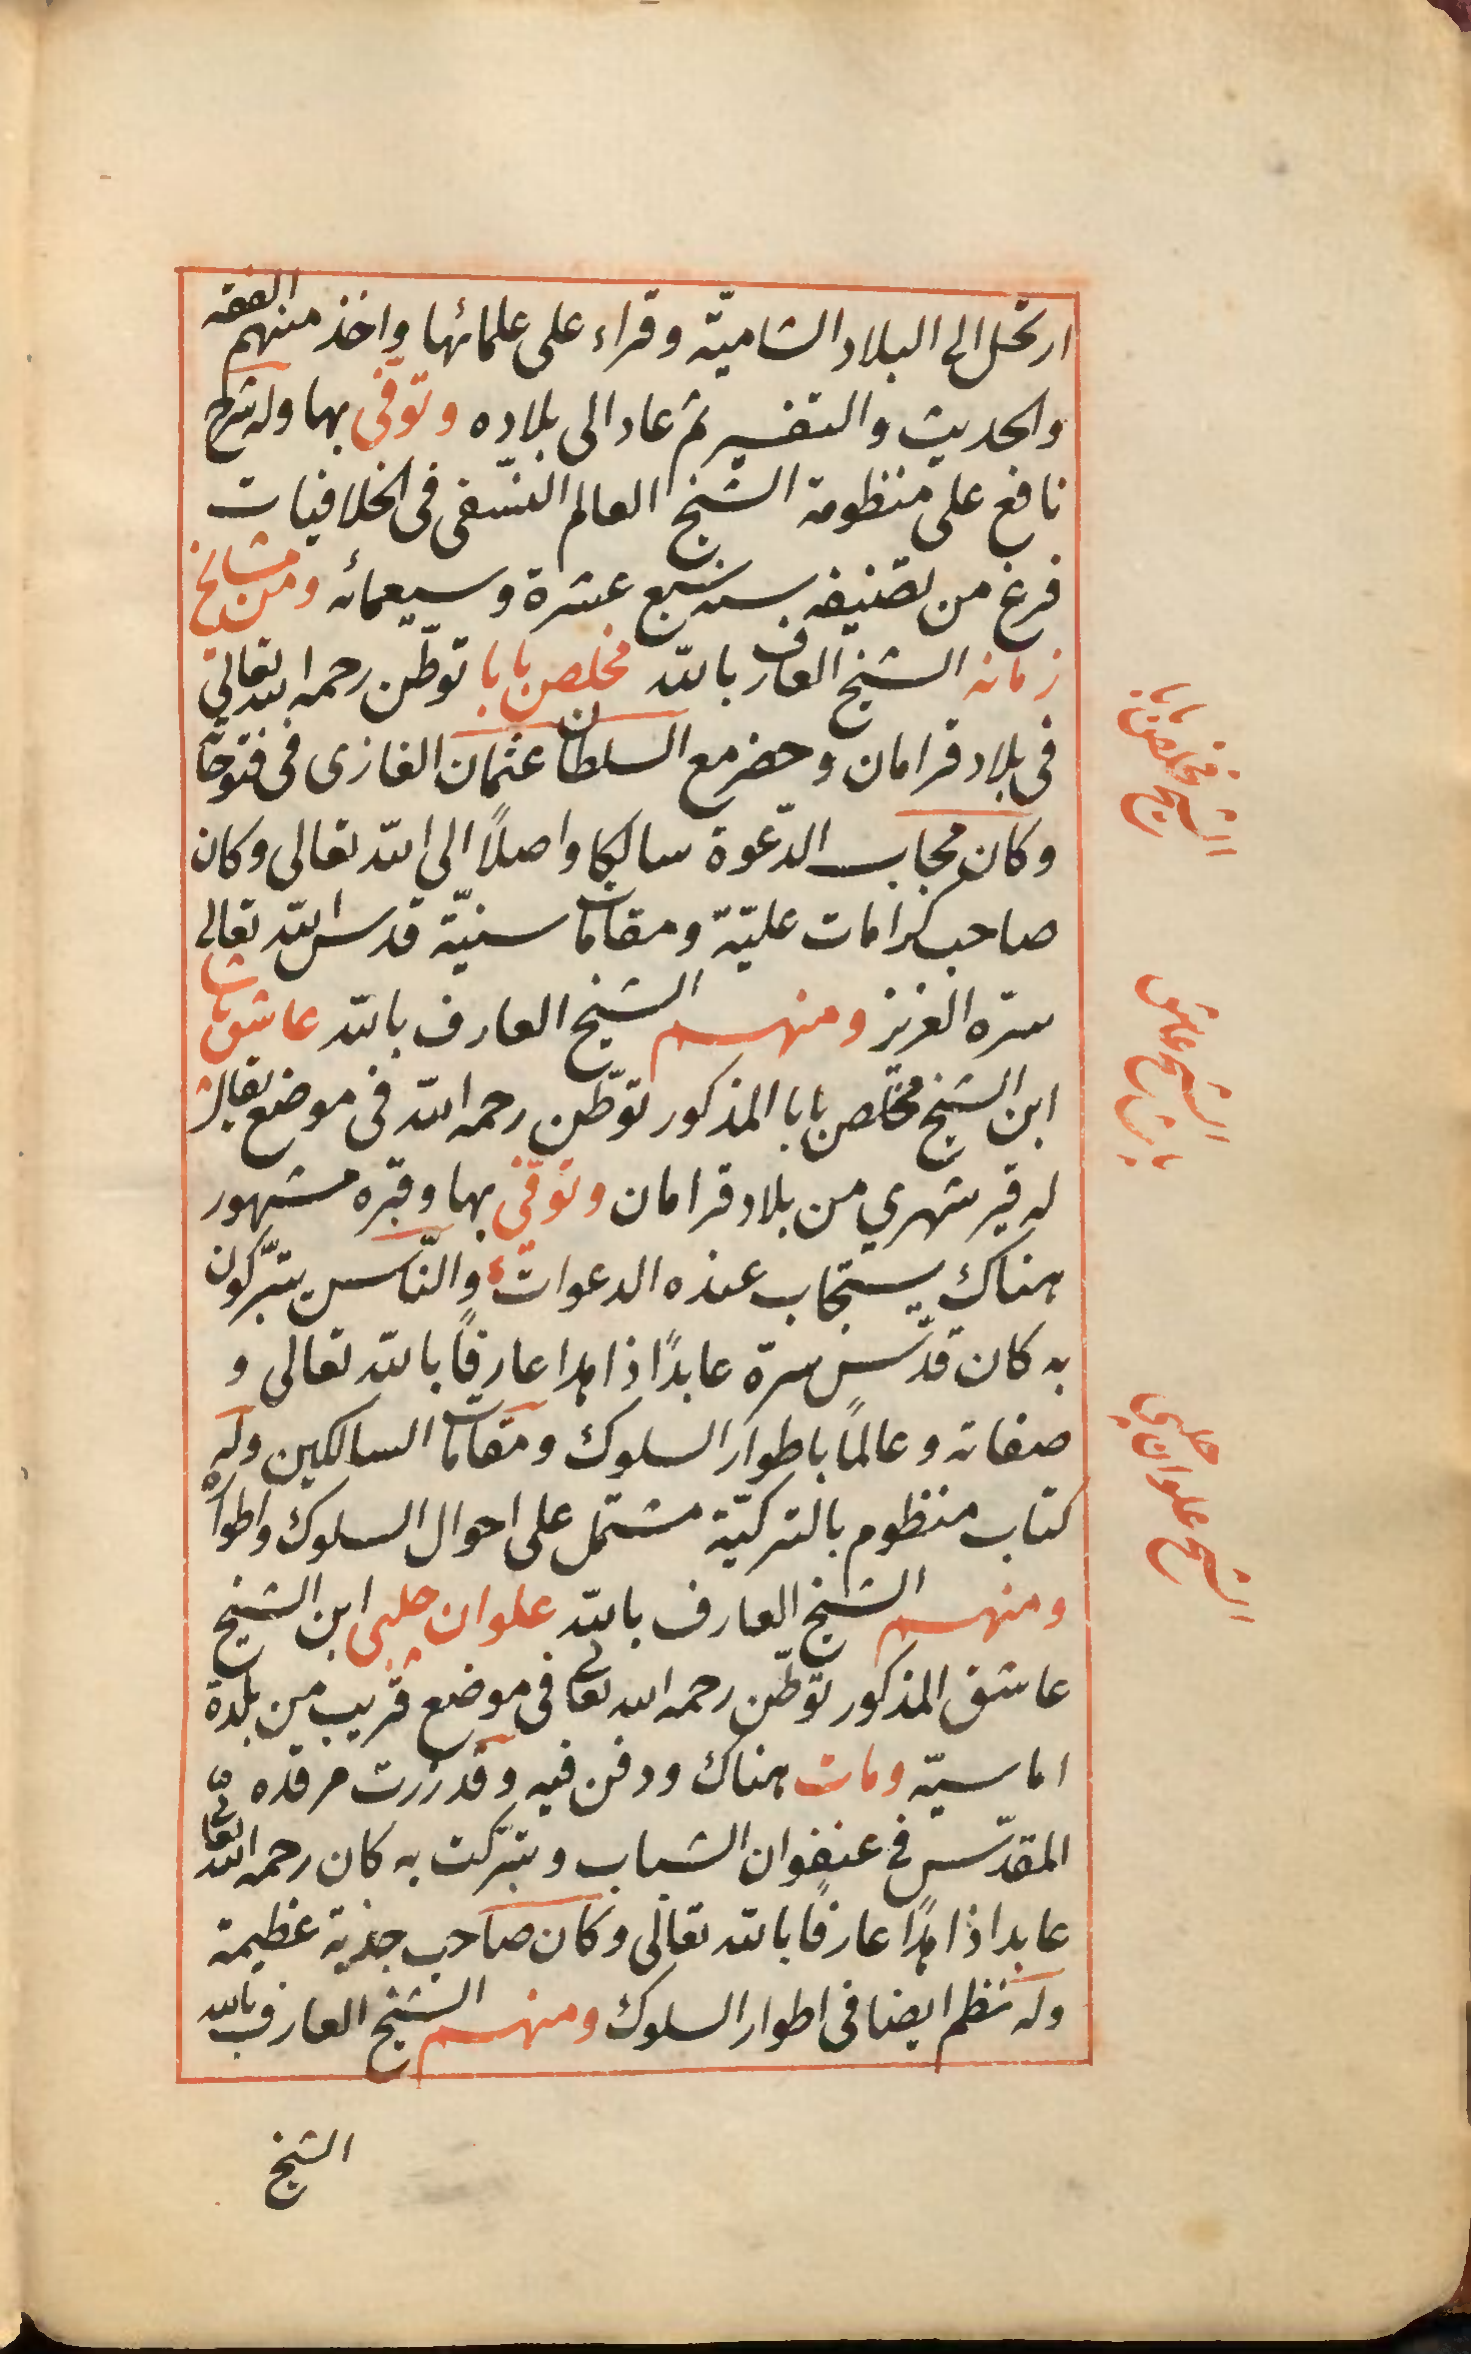 ارتحل الى البلاد الشاميّة وقراء على علمائها واخذ منهم الفقه
والحديث والتفسير ثم عاد الى بلاده وتوفى بها وله شرح
نافع على منظومة الشيخ العالم النسّفى فى الخلافيات
فرغ من تصنيفه سنه سبع عشرة وسبعمائه ومن مشايخ
زمانه الشيخ العارف بالله مخلص بابا توطّن رحمه الله تعالى
فى بلاد قرامان وحضر مع السلطان عثمان الغازى فى فتوحا
وكان مجاب الدّعوة سالكا واصلاً الى الله تعالى وكان
صاحب كرامات عليّة ومقامات سنيّة قدس الله تعالى
سرّه العزيز ومنهم الشيخ العارف بالله عاشق باشا
ابن الشيخ مخلص بابا المذكور توطّن رحمه الله فى موضع يقال
له قير شهري من بلاد قرامان وتوفّى بها وقبّره مشهور
هناك يستجاب عنده الدعوات والنّاس يتبّركون
به كان قدّس سرّة عابدًا ذاهدا عارفًا بالله تعالى و
صفاته وعالمًا باطوار السلوك ومقامات السالكين وله
كتاب منظوم بالتركيّة مشتمل على احوال السلوك واطواره
ومنهم الشيخ العارف بالله علوان چلبى ابن الشيخ
عاشق المذكور توطّن رحمه الله تعالى فى موضع قريب من بلدة
اماسيّه ومات هناك ودفن فيه وقد زرت مرقده
المقدّس فى عنفوان الشباب وتبّركت به كان رحمه الله تعالى
عابدا ذاهدًا عارفًا بالله تعالى وكان صاحب جذبة عظيمة
وله نظم ايضا فى اطوار السلوك ومنهم الشيخ العارف بالله
الشيخ
الشيخ مخلص بابا
الشيخ عاشق
باشا
الشيخ علوان چلبى